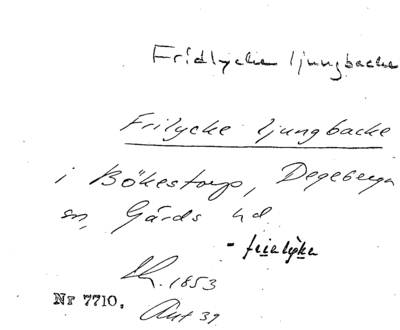 Fridlycke ljungbacke
Frilycke ljungbacke
i Bökestorp, Degeberga
sn, Gärds hd
- frelỳke
1853
Nr 7710.
Ant 39